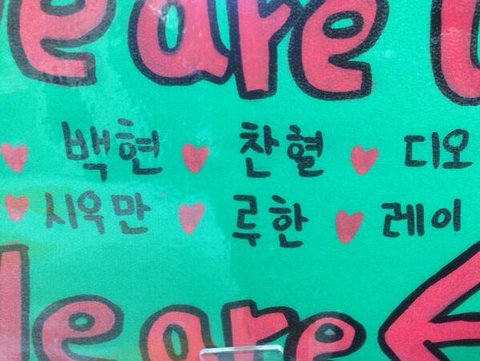 e are
백현 찬혈 디오
시윽만 루한 레이
e are